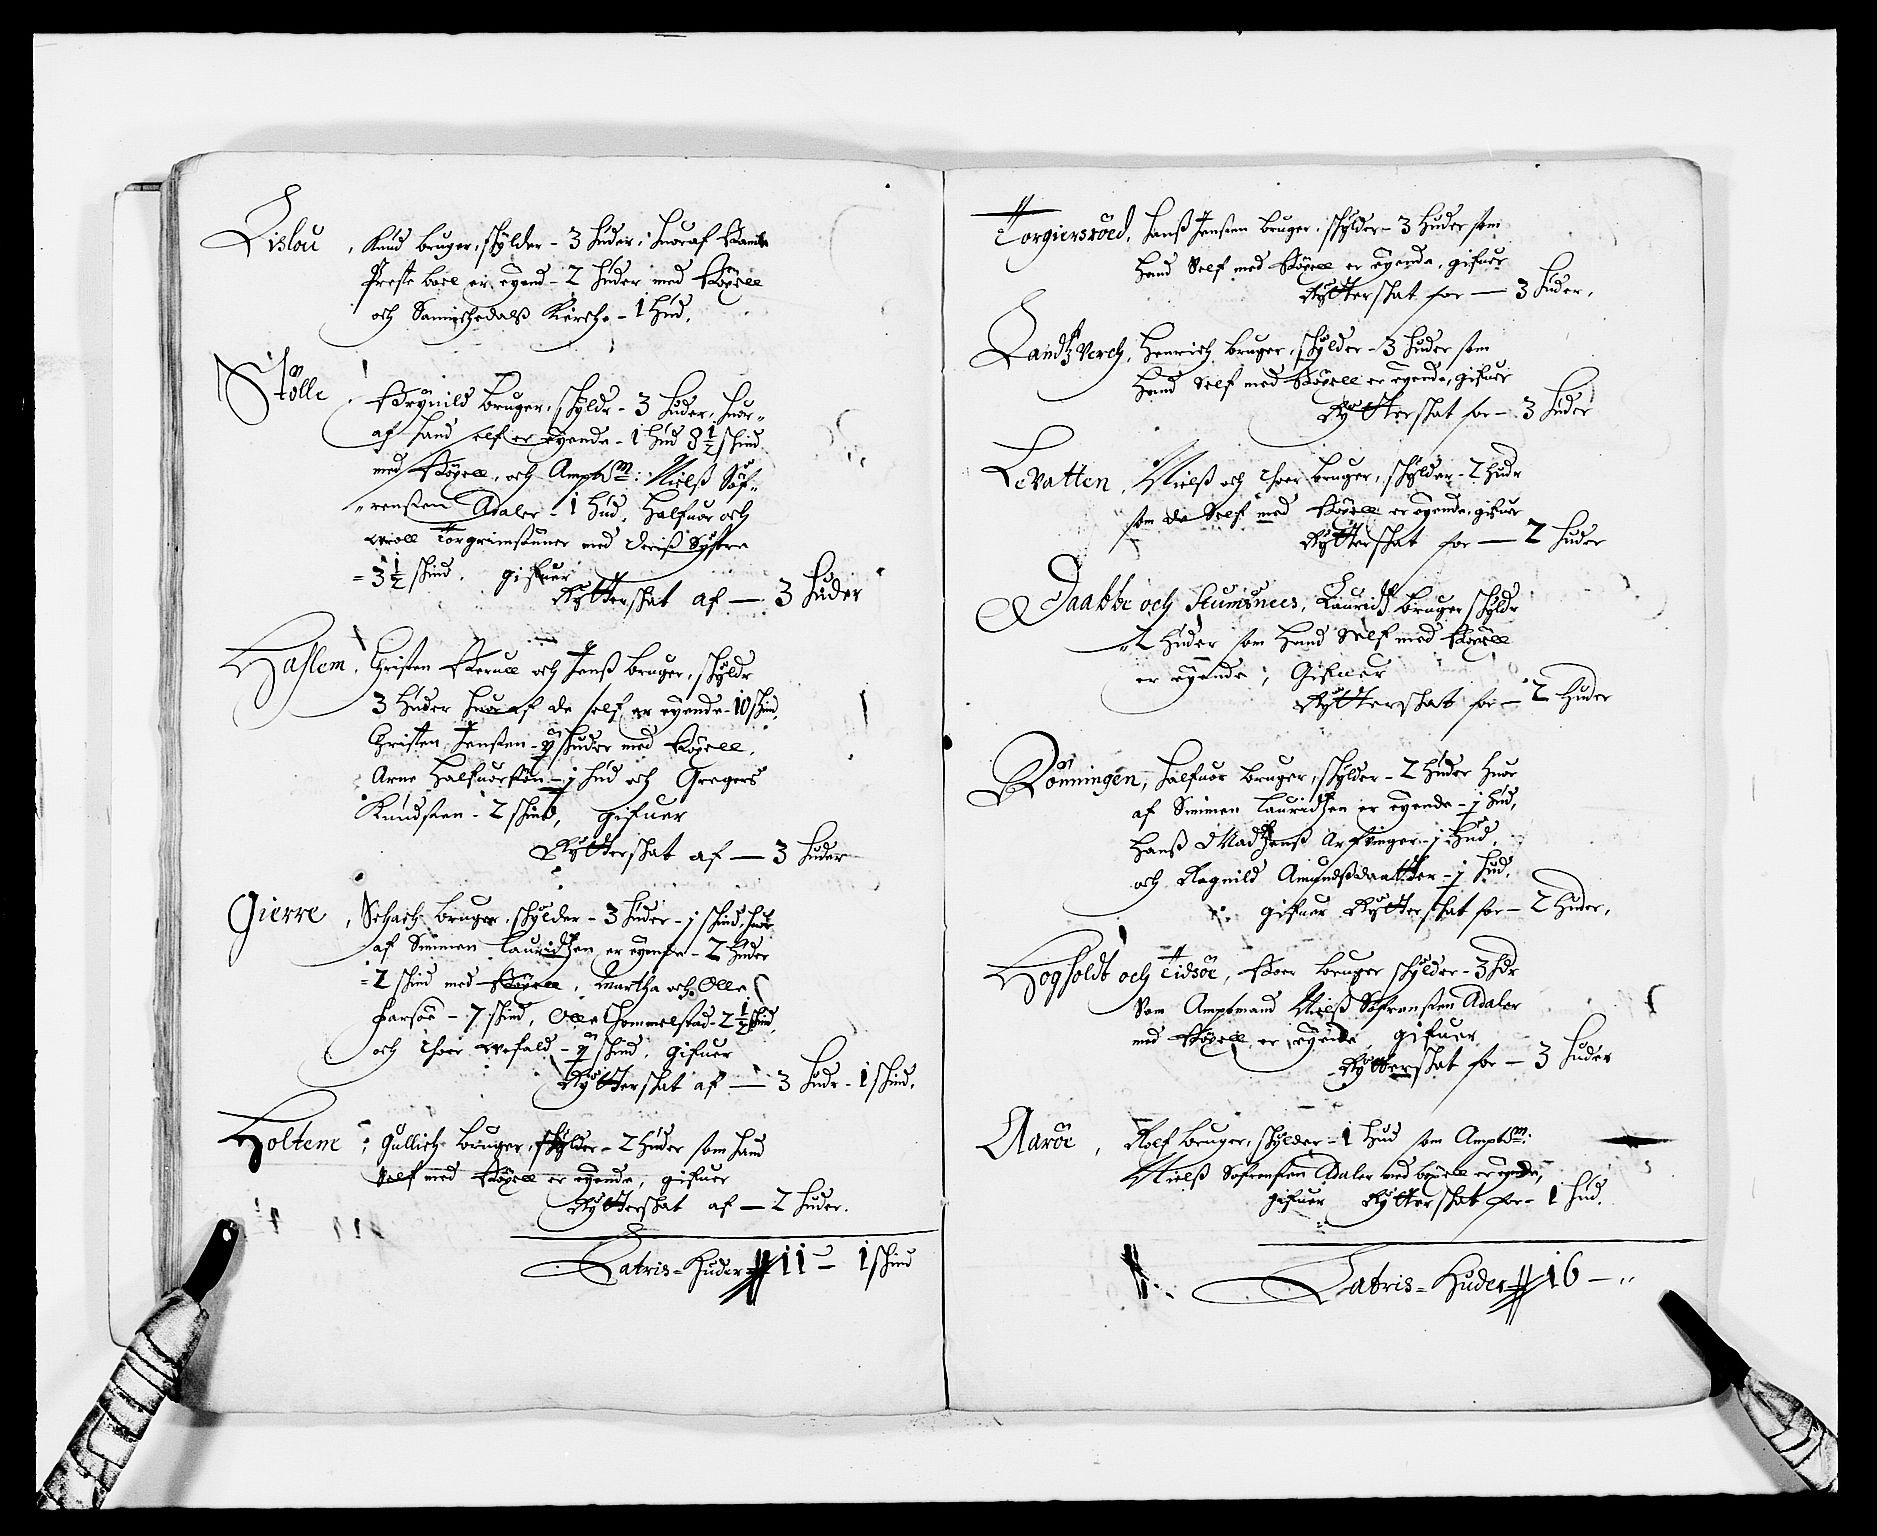 Lislou, Knud bruger, schylder - 3 huder, huoraf Bamble
Preste boel er eyend - 2 huder med Böxell
och Sannichedalß Kirche - 1 hud.
Stölle, Brÿnild bruger, schyldr - 3 huder, huor-
af hand self er eyende - 1 hud 8 1/2 schind
med Böxell, och Amptm: Nielß Söf-
rensten Adaler - 1 hud, Halfuor och
Torgrimstuner med deriß Systre
= 3 1/2 schind. gifuer
Rytterschat af — 3 huder
Haslem, Christen och Jenß bruger, schyldr
3 huder huoraf de self er eyende - 10 schind,
Christen Jensten - huder med Böxell,
Arne Halfuorsön - j hud och Gregers
Knudsten - 2 schind, gifuer
Rytterschat af — 3 huder
Gierre, bruger, schylder - 3 huder - j schind, huor
af Simmen Lauridzen er eyende - 2 huder
= 2 schind med Böxell, Martha och Olle
Farsöe - 7 schind, Olle Hommelstad - 2 1/2 schind,
och Thoer - schind, gifuer
Rytterschat af — 3 hudr - 1 schind.
Holtene, Gullich bruger, schylder - 2 huder som hand
Self med Böxell er eyende, gifuer
Rytterschat af — 2 huder.
Latris = Huder 11 — 1 schind
Torgiersröed, Hanß Jensten bruger, schylder - 3 huder som
hand Self med Böxell er eyende, gifuer
Rytterschat for — 3 huder,
Landtzverch, Henrich bruger, schylder - 3 huder som
hand Self med Böxell er eyende, gifuer
Rytterschat for — 3 huder
Levatten, Nielß och Thoer bruger, schylder - 2 hudr
som de Self med Böxell er eyende, gifuer
Rytterschat for — 2 huder
Daabbe och Stumsnees, Lauridtz bruger schyldr
2 huder som hand Self med Böxell
er eyende, Gifuer
Rytterschat for — 2 huder
Rönningen, Halfuor bruger, schylder - 2 huder huor
af Simmen Lauridtzen er eyende - j hud,
Hanß Madtzenß Arfvinger - j hud,
och Ragnild Amundßdaatter - j hud,
gifuer Rytterschat for — 2 huder,
Hogholdt och Tidsöe, Boer bruger schylder - 3 hdr
Som Amptmand Nielß Söfrensten Adaler
med Böxell er eyende, gifuer
Rytterschat for — 3 huder
Aaröe, Rolf bruger, schylder - 1 hud som Amptm:
Nielß Söfrensten Adaler med böxell er eyende,
gifuer Rytterschat for - 1 hud.
Latris = Huder 16 —